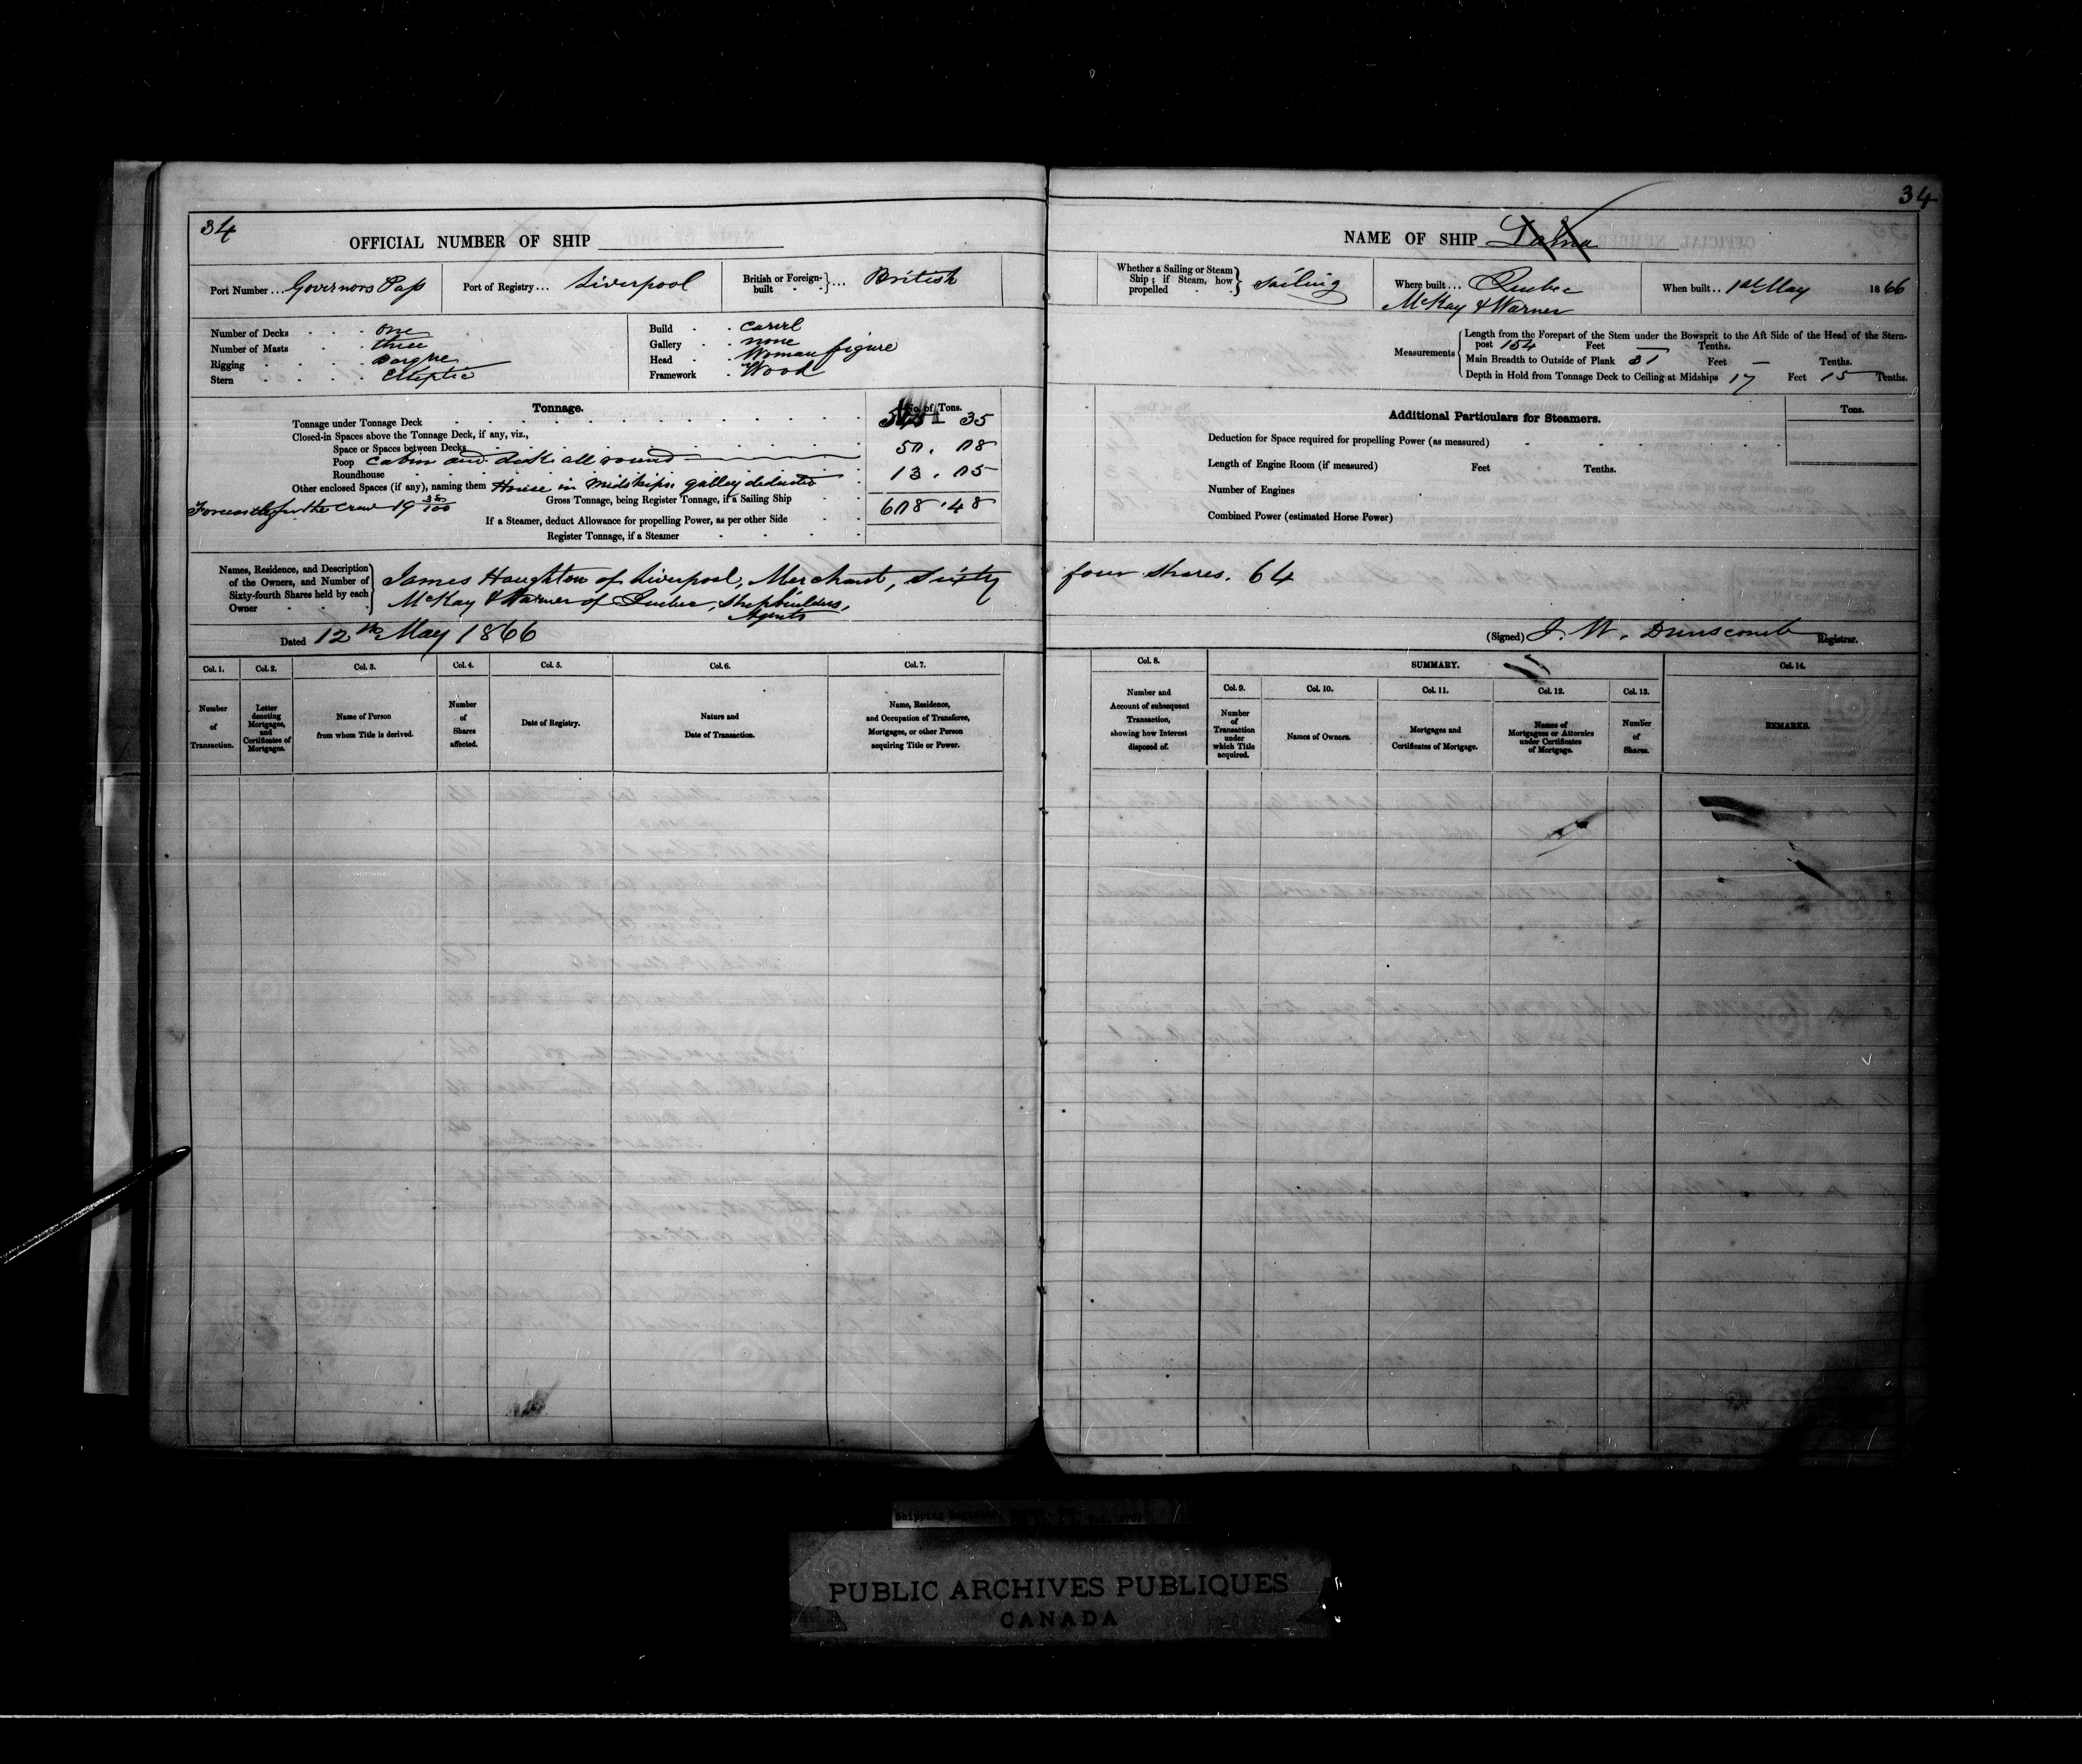 34
OFFICIAL NUMBER OF SHIP
Port Number ... Governors Pass
Port of Registry ... Liverpool
British or Foreign-built ... British
Number of Decks one
Number of Masts three
Rigging Barque
Stern Elliptic
Build Carvel
Gallery none
Head Woman figure
Framework Wood
Tonnage.
No. of Tons.
Tonnage under Tonnage Deck 35
Closed-in Spaces above the Tonnage Deck, if any, viz.,
Space or Spaces between Decks
Poop Cabin and deck all round 57.78
Roundhouse
Other enclosed Spaces (if any), naming them House in Midships galley deducted 13.75
Forecastle for the Crew 19 38/100
Gross Tonnage, being Register Tonnage, if a Sailing Ship 678.48
If a Steamer, deduct Allowance for propelling Power, as per other Side
Register Tonnage, if a Steamer
Names, Residence, and Description of the Owners, and Number of Sixty-fourth Shares held by each Owner
James Haughton of Liverpool, Merchant, Sixty
McKay & Warner of Quebec, Shipbuilders,
Agents
Dated 12th May 1866
Col. 1. Col. 2. Col. 3. Col. 4. Col. 5. Col. 6. Col. 7.
Number of Transaction.
Letter denoting Mortgages, and Certificates of Mortgages.
Name of Person from whom Title is derived.
Number of Shares affected.
Date of Registry.
Nature and Date of Transaction.
Name, Residence, and Occupation of Transferee, Mortgagee, or other Person acquiring Title or Power.
34
NAME OF SHIP
Whether a Sailing or Steam Ship; if Steam, how propelled Sailing
Where built ... Quebec
McKay & Warner
When built .. 1st May 1866
Measurements
Length from the Forepart of the Stem under the Bowsprit to the Aft Side of the Head of the Stern-
post 154 Feet — Tenths.
Main Breadth to Outside of Plank 31 Feet — Tenths.
Depth in Hold from Tonnage Deck to Ceiling at Midships 17 Feet 15 Tenths.
Additional Particulars for Steamers.
Tons.
Deduction for Space required for propelling Power (as measured)
Length of Engine Room (if measured) Feet Tenths.
Number of Engines
Combined Power (estimated Horse Power)
four shares. 64
(Signed) J. W. Dunscomb Registrar.
Col. 8. SUMMARY. Col. 14.
Col. 9. Col. 10. Col. 11. Col. 12. Col. 13.
Number and Account of subsequent Transaction, showing how Interest disposed of.
Number of Transaction under which Title acquired.
Names of Owners.
Mortgages and Certificates of Mortgage.
Names of Mortgagees or Attornies under Certificates of Mortgage.
Number of Shares.
REMARKS.
PUBLIC ARCHIVES PUBLIQUES
CANADA